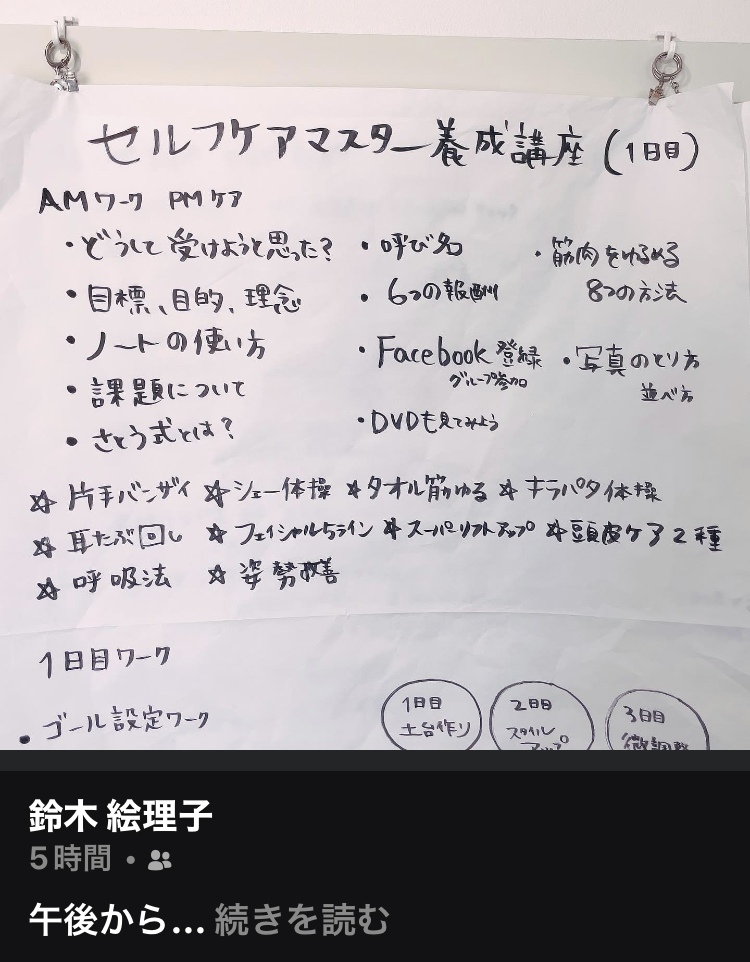 セルフケアマスター養成講座(1日目)
AMワーク PMケア
・どうして受けようと思った?
・目標、目的、理念
・ノートの使い方
・課題について
・さとう式とは?
・呼び名
・6つの報酬
・Facebook登録
グループ参加
・DVDも見てみよう
・筋肉をゆるめる
8つの方法
・写真のとり方
並べ方
☆片手バンザイ ☆シェー体操 ☆タオル筋ゆる ☆キラパタ体操
☆耳たぶ回し ☆フェイシャル5ライン ☆スーパーリフトアップ ☆頭皮ケア2種
☆呼吸法 ☆姿勢改善
1日目ワーク
・ゴール設定ワーク
1日目
土台作り
2日目
スタイル
アップ
3日目
微調整
鈴木 絵理子
5時間 •
午後から... 続きを読む